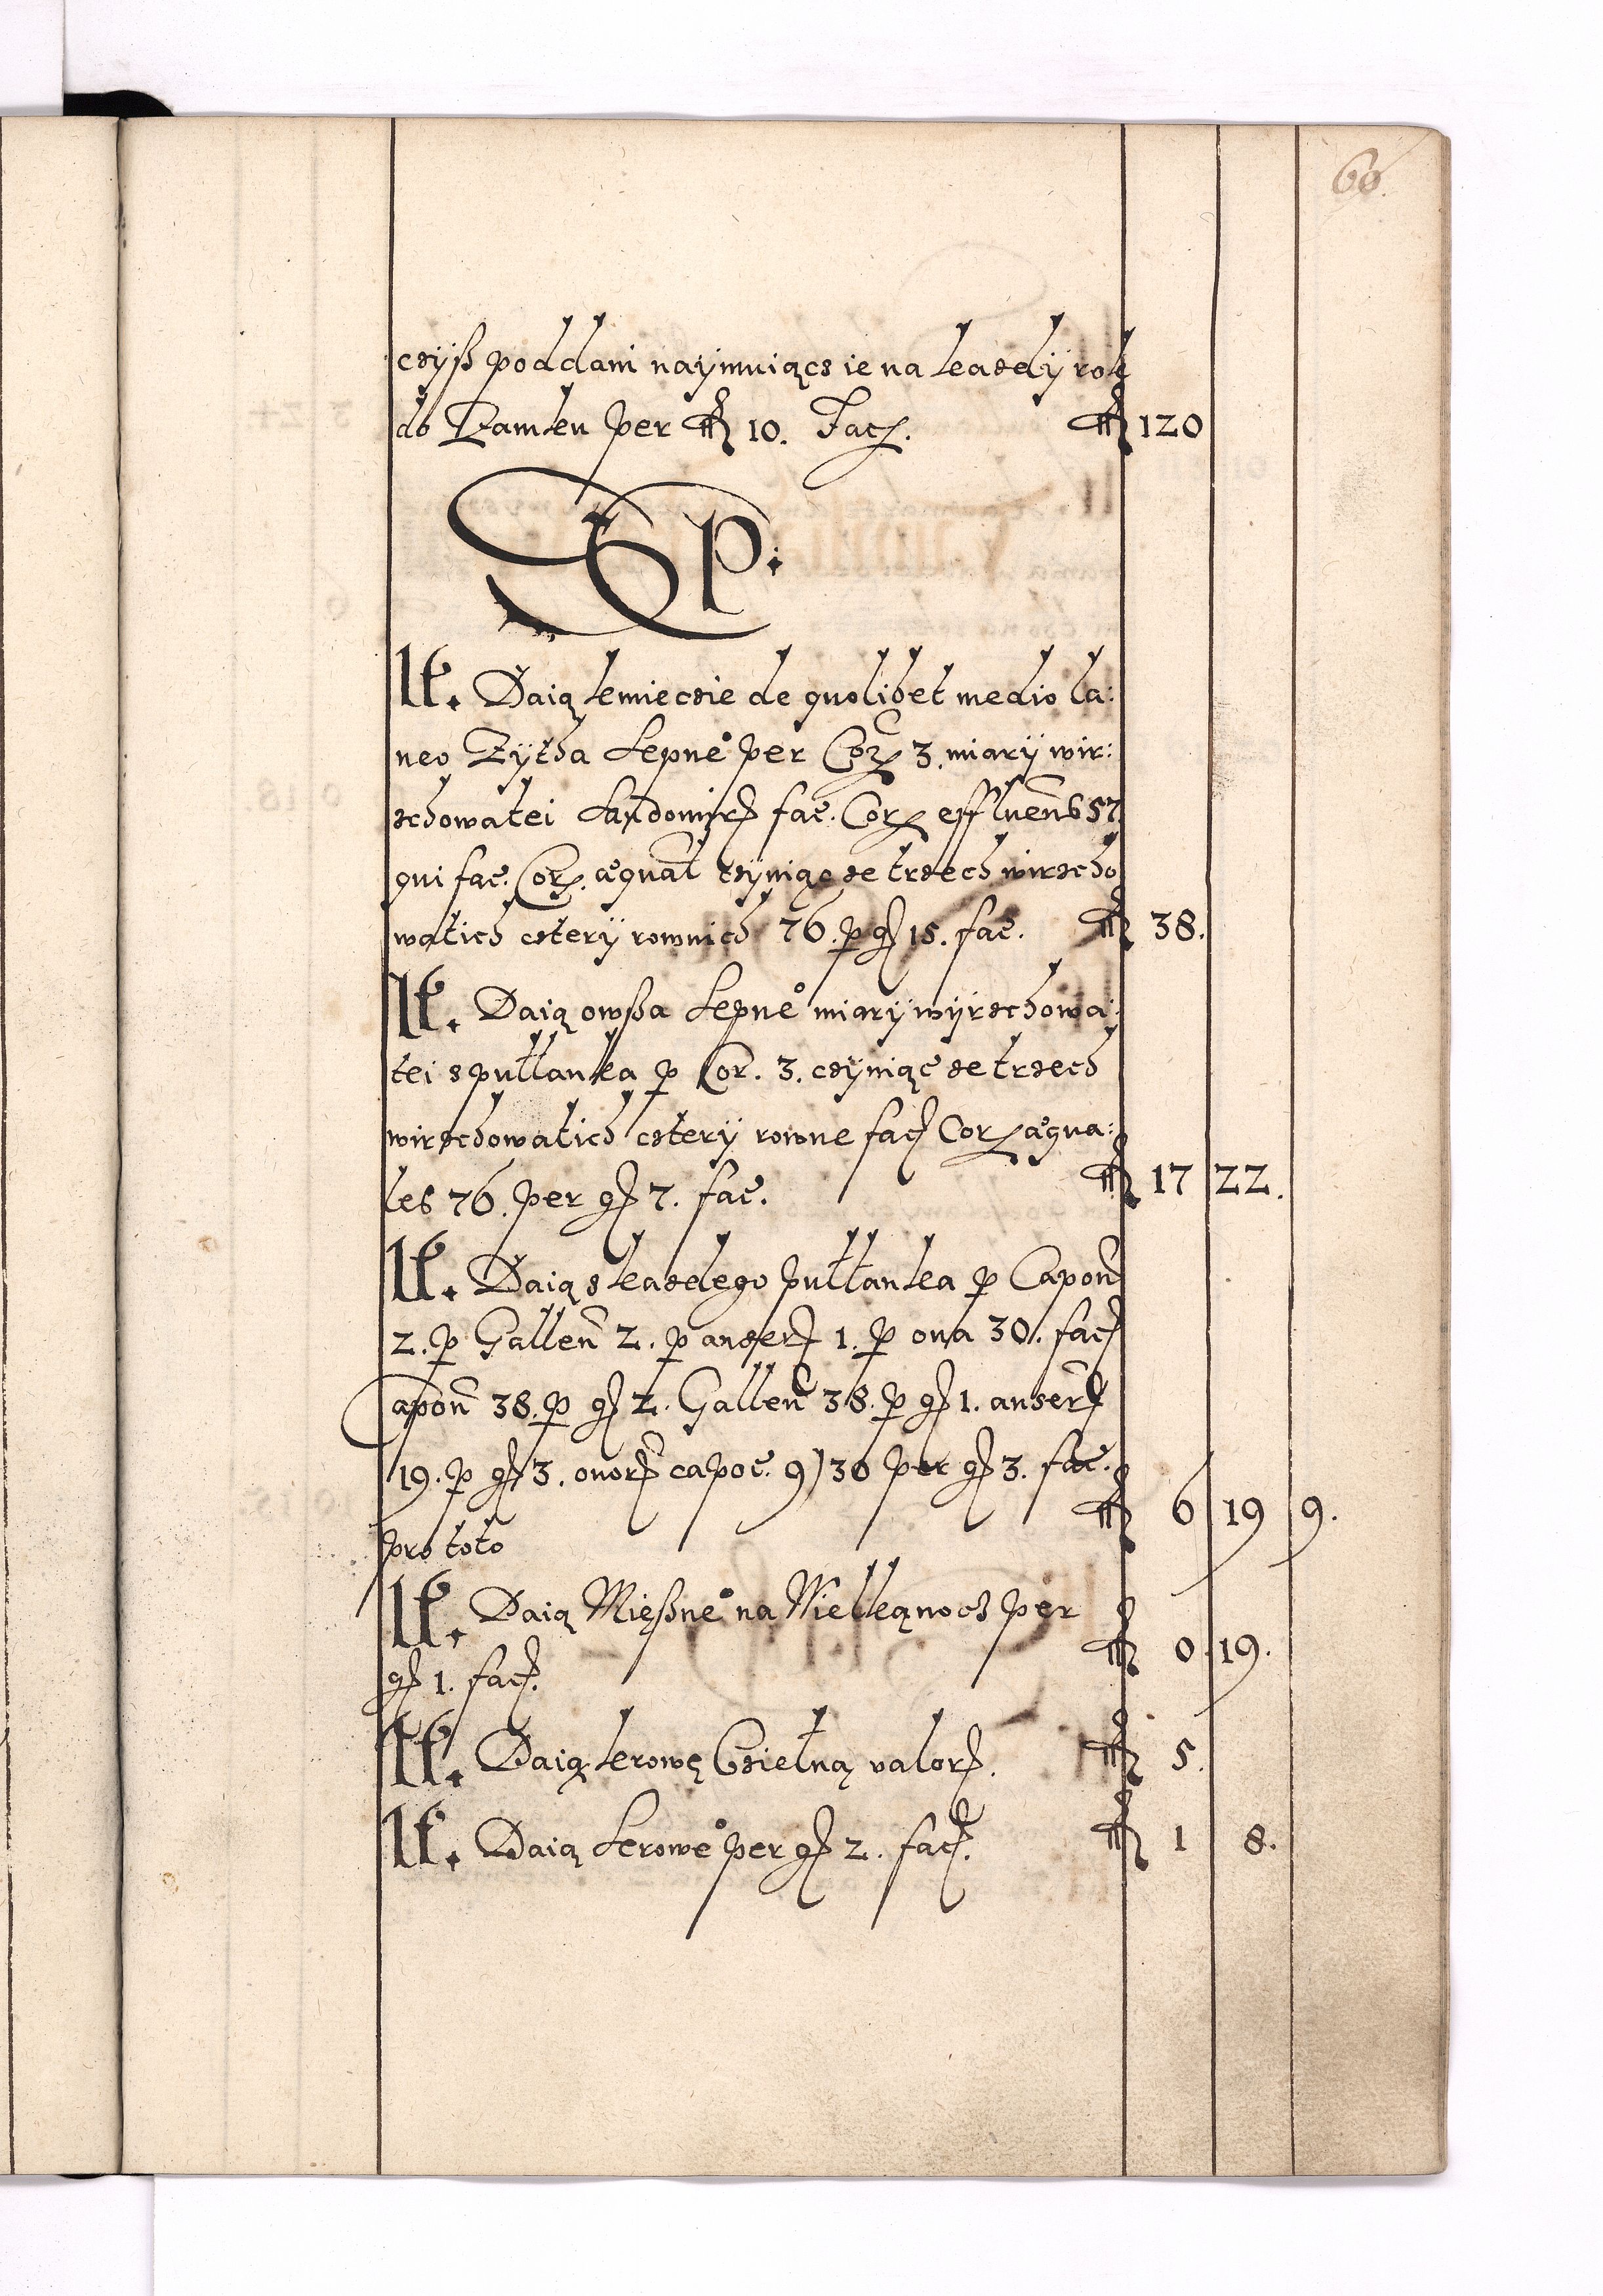 60.
czÿß poddani naÿmuiącz ie na kazdÿ rok
do Zamku per fl 10. Facz. fl 120
SP:
It. Daią kmieczie de quolibet medio la:
neo Zÿtha Sepne° per Corz 3. miarÿ wir:
zchowatei Sandomirz fac. Corz effluent 57
qui fac. Corz. æquat czÿniąc ze trzech wirzcho
watich cztery rownich 76. p gr 15. fac. fl 38.
It. Daią owßa Sepne° miarÿ wÿrzchowa:
tei z pułłanka p Cor. 3. czÿniąc ze trzech
wirzchowatich czterÿ rowne facz Corz æqua:
les 76. per gr 7. fac. fl 17 22.
It. Daią z kazdego pułłanka p Capon
2. p Gallen 2. p anser 1. p ova 30. facz
Capon 38. p gr 2. Gallen 38. p gr 1. anser
19. p gr 3. ovor capoc. 9) 30 per gr 3. fac.
pro toto fl 6 19 9.
It. Daią Mięßne° na Wielkąnocz per
gr 1. facz. fl 0. 19.
It. Daią krowę Czielną valor. fl 5.
It. Daią Serowe° per gr 2. facz. fl 1 8.